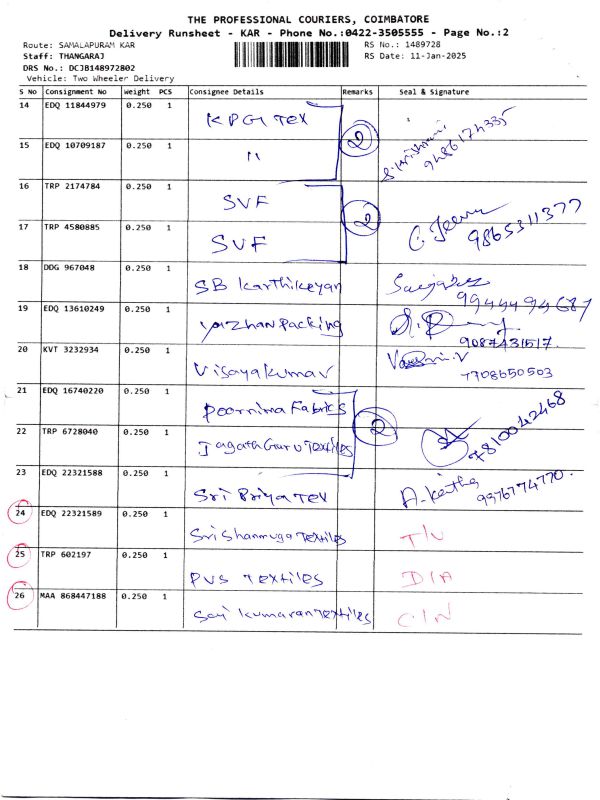 THE PROFESSIONAL COURIERS, COIMBATORE
Delivery Runsheet - KAR - Phone No.:0422-3505555 - Page No.:2
Route: SAMALAPURAM KAR RS No.: 1489728
Staff: THANGARAJ RS Date: 11-Jan-2025
DRS No.: DCJB148972802
Vehicle: Two Wheeler Delivery
S No Consignment No Weight PCS Consignee Details Remarks Seal & Signature
14 EDQ 11844979 0.250 1 KPG Tex 2 9486174335
15 EDQ 10709187 0.250 1 "
16 TRP 2174784 0.250 1 SVF 2
17 TRP 4580885 0.250 1 SVF 9865311377
18 DDG 967048 0.250 1 SB Karthikeyan 9944494687
19 EDQ 13610249 0.250 1 yazhan packing 9087431517.
20 KVT 3232934 0.250 1 Vijayakumar 7708650503
21 EDQ 16740220 0.250 1 Poornima Fabrics 2 7810042468
22 TRP 6728040 0.250 1 Jagath Guru Textiles
23 EDQ 22321588 0.250 1 Sri Priya Tex 9976774770.
24 EDQ 22321589 0.250 1 Sri Shanmuga Textiles
25 TRP 602197 0.250 1 PVS Textiles D/A
26 MAA 868447188 0.250 1 Sai kumaran Textiles